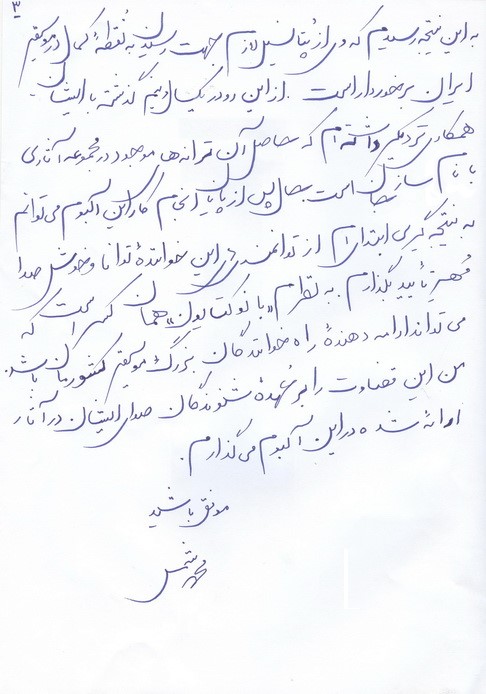 ۳
به این نتیجه رسیدم که وی از پتانسیل لازم جهت رسیدن به نقطهٔ کمال در موسیقی
ایران برخوردار است. از این رو در یکسال و نیم گذشته با ایشان
همکاری نزدیکی داشته‌ام که حاصل آن ترانه‌ها موجود در مجموعه آثاری
با نام است. حال پس از پایان انجام کار این آلبوم می‌توانم
به نتیجه‌گیری ابتدای ام از توانمندی‌های این خوانندهٔ توانا و خوش صدا
مُهرِ تأیید بگذارم. به نظرام «بانو کتایون» همان کسی است که
می‌تواند ادامه دهندهٔ راه خوانندگان بزرگ موسیقی کشورمان باشد.
من این قضاوت را بر عُهدهٔ شنوندگان صدای ایشان در آثار
ارائه شده در این آلبوم می‌گذارم.
موفق باشید
محمد شمس